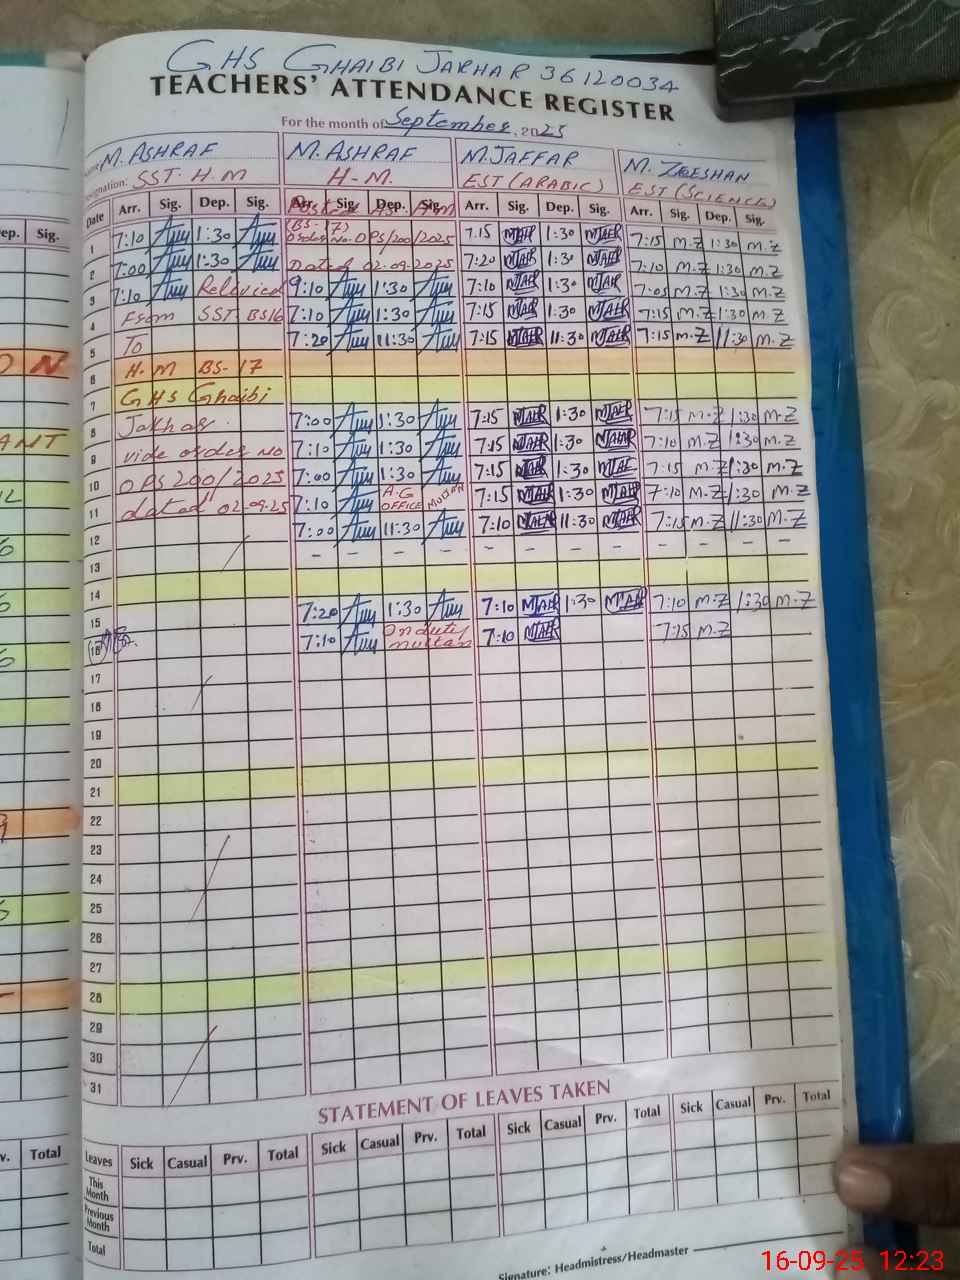 GHS GHAIBI JAKHAR 36120034
TEACHERS' ATTENDANCE REGISTER
For the month of September, 2025
M. ASHRAF M. ASHRAF M. JAFFAR M. ZEESHAN
Designation: SST. H.M H-M. EST (ARABIC) EST (SCIENCE)
Date Arr. Sig. Dep. Sig. Arr. Sig. Dep. Sig. Arr. Sig. Dep. Sig. Arr. Sig. Dep. Sig.
1 7:10 1:30 (BS-17) Order No. OPS/200/2025 7:15 1:30 7:15 M.Z 1:30 M.Z
2 7:00 1:30 Dated 02.09.2025 7:20 1:30 7:10 M.Z 1:30 M.Z
3 7:10 Relieved 9:10 1:30 7:10 1:30 7:05 M.Z 1:30 M.Z
4 From SST BS16 7:10 1:30 7:15 1:30 7:15 M.Z 1:30 M.Z
5 To 7:20 11:30 7:15 11:30 7:15 M.Z 11:30 M.Z
6 H.M BS-17
7 GHS Ghaibi
8 Jakhar. 7:00 1:30 7:15 1:30 7:15 M.Z 1:30 M.Z
9 vide order No 7:10 1:30 7:15 1:30 7:10 M.Z 1:30 M.Z
10 OPS 200/2025 7:00 1:30 7:15 1:30 7:15 M.Z 1:30 M.Z
11 dated 02-09-25 7:10 A.G OFFICE MULTAN 7:15 1:30 7:10 M.Z 1:30 M.Z
12 7:00 11:30 7:10 11:30 7:15 M.Z 11:30 M.Z
13 - - - - - - - - - - - -
14
15 7:20 1:30 7:10 1:30 7:10 M.Z 1:30 M.Z
16 7:10 On duty multan 7:10 7:15 M.Z
17
18
19
20
21
22
23
24
25
26
27
28
29
30
31
STATEMENT OF LEAVES TAKEN
Leaves Sick Casual Prv. Total Sick Casual Prv. Total Sick Casual Prv. Total Sick Casual Prv. Total
This Month
Previous Month
Total
Signature: Headmistress/Headmaster
ep. Sig.
O N
ANT
v. Total
16-09-25 12:23